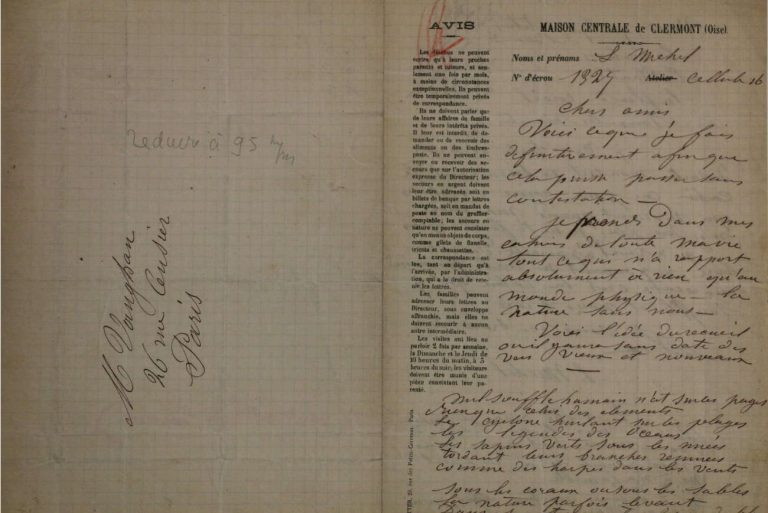 reduire à 95 m/m
M Vaughan
26 rue Censier
Paris
AVIS
Les détenus ne peuvent
écrire qu'à leurs proches
parents et tuteurs, et seu-
lement une fois par mois,
à moins de circonstances
exceptionnelles. Ils peuvent
être temporairement privés
de correspondance.
Ils ne doivent parler que
de leurs affaires de famille
et de leurs intérêts privés.
Il leur est interdit, de de-
mander ou de recevoir des
aliments ou des timbres-
poste. Ils ne peuvent en-
voyer ou recevoir des se-
cours que sur l'autorisation
expresse du Directeur; les
secours en argent doivent
leur être adressés soit en
billets de banque par lettres
chargées, soit en mandat de
poste au nom du greffier-
comptable; les secours en
nature ne peuvent consister
qu'en menus objets de corps,
comme gilets de flanelle,
tricots et chaussettes.
La correspondance est
lue, tant au départ qu'à
l'arrivée, par l'administra-
tion, qui a le droit de rete-
nir les lettres.
Les familles peuvent
adresser leurs lettres au
Directeur, sous enveloppe
affranchie, mais elles ne
doivent recourir à aucun
autre intermédiaire.
Les visites ont lieu au
parloir 2 fois par semaine,
le Dimanche et le Jeudi de
10 heures du matin, à 5
heures du soir; les visiteurs
doivent être munis d'une
pièce constatant leur pa-
renté.
MAISON CENTRALE de CLERMONT (Oise).
Noms et prénoms L Michel
N° d'écrou 1327 Atelier cellule 16
chers amis
Voici ce que je fais
definitivement afin que
cela puisse passer sans
contestation —
je prends dans mes
cahiers de toute ma vie
tout ce qui n'a rapport
absolument à rien qu'au
monde physique — la
nature sans nous —
Voici l'idée du recueil
où il y aura sans date des
vers vieux et nouveaux
Nul souffle humain n'est sur les pages
Rien que celui des elements
Le cyclone hurlant sur les plages
les legendes des Oceans
les sapins verts sous les nuées
tordant leurs branches remuées
comme des harpes dans les vents
sous les coraux ou sous les sables
la nature parfois levant